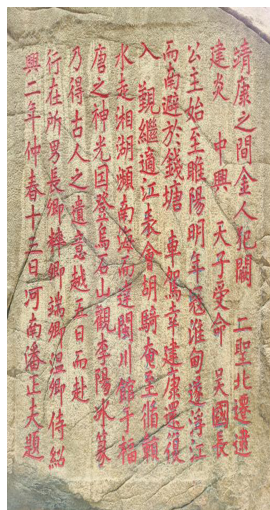 靖康之間金人犯闕 二聖北遷遭
建炎 中興 天子受命 吳國長
公主始至睢陽明年寇淮甸遂浮江
而南避於錢塘 車駕幸建康還復
入 覲繼適江表會胡騎奄至循贛
水走湘湖瀕南海而達閩川館于福
唐之神光因登烏石山觀李陽冰篆
乃得古人之遺意越五日而赴
行在所男長卿粹卿端卿溫卿侍紹
興二年仲春十三日河南潘正夫題